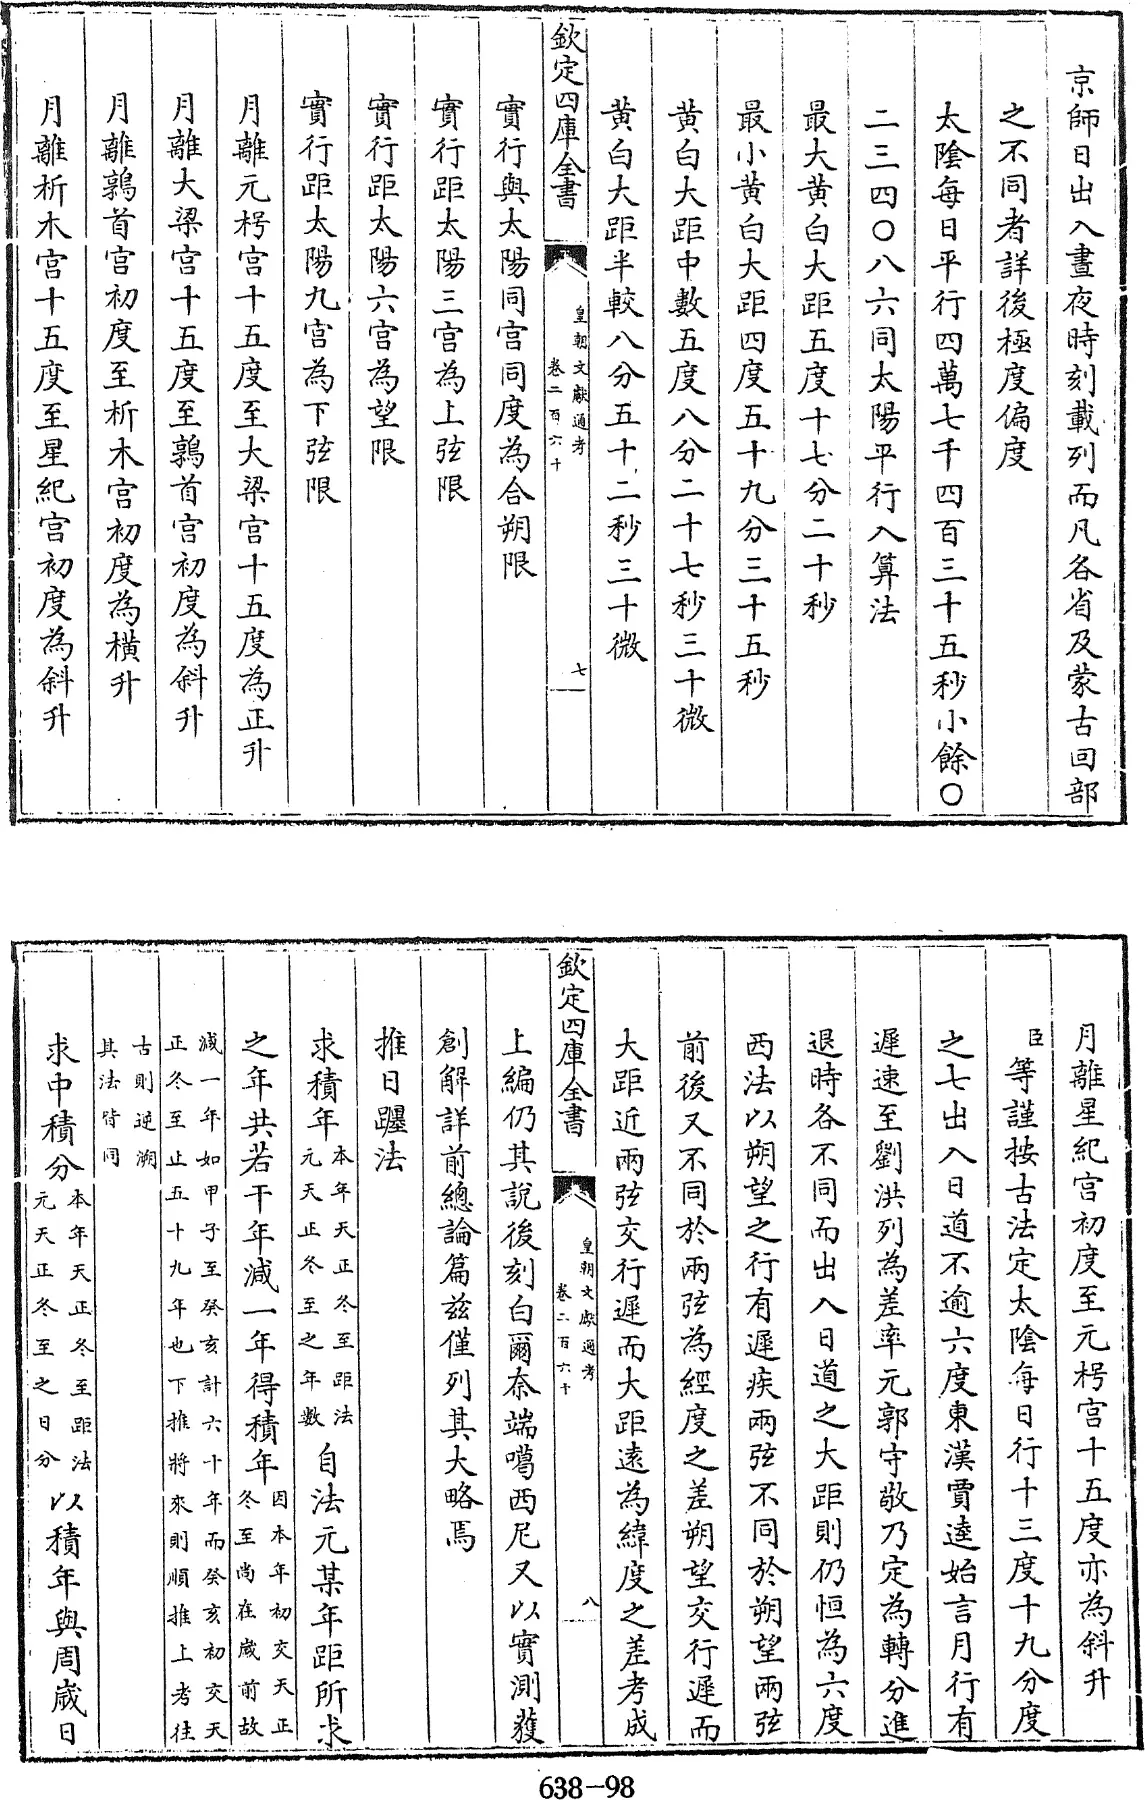 京師日出入晝夜時刻載列而凡各省及蒙古回部
之不同者詳後極度偏度
太陰每日平行四萬七千四百三十五秒小餘〇
二三四〇八六同太陽平行入算法
最大黃白大距五度十七分二十秒
最小黃白大距四度五十九分三十五秒
黃白大距中數五度八分二十七秒三十微
黃白大距半較八分五十二秒三十微
欽定四庫全書
皇朝文獻通考
卷二百六十
七
實行與太陽同宮同度為合朔限
實行距太陽三宮為上弦限
實行距太陽六宮為望限
實行距太陽九宮為下弦限
月離元枵宮十五度至大梁宮十五度為正升
月離大梁宮十五度至鶉首宮初度為斜升
月離鶉首宮初度至析木宮初度為橫升
月離析木宮十五度至星紀宮初度為斜升
月離星紀宮初度至元枵宮十五度亦為斜升
臣等謹按古法定太陰每日行十三度十九分度
之七出入日道不逾六度東漢賈逵始言月行有
遲速至劉洪列為差率元郭守敬乃定為轉分進
退時各不同而出入日道之大距則仍恒為六度
西法以朔望之行有遲疾兩弦不同於朔望兩弦
前後又不同於兩弦為經度之差朔望交行遲而
大距近兩弦交行遲而大距遠為緯度之差考成
欽定四庫全書
皇朝文獻通考
卷二百六十
八
上編仍其說後刻白爾奈端噶西尼又以實測獲
創解詳前總論篇茲僅列其大略焉
推日躔法
求積年本年天正冬至距法元天正冬至之年數自法元某年距所求
之年共若干年減一年得積年因本年初交天正冬至尚在歲前故
減一年如甲子至癸亥計六十年而癸亥初交天正冬至止五十九年也下推將來則順推上考往
古則逆溯其法皆同
求中積分本年天正冬至距法元天正冬至之日分以積年與周歲日
638-98